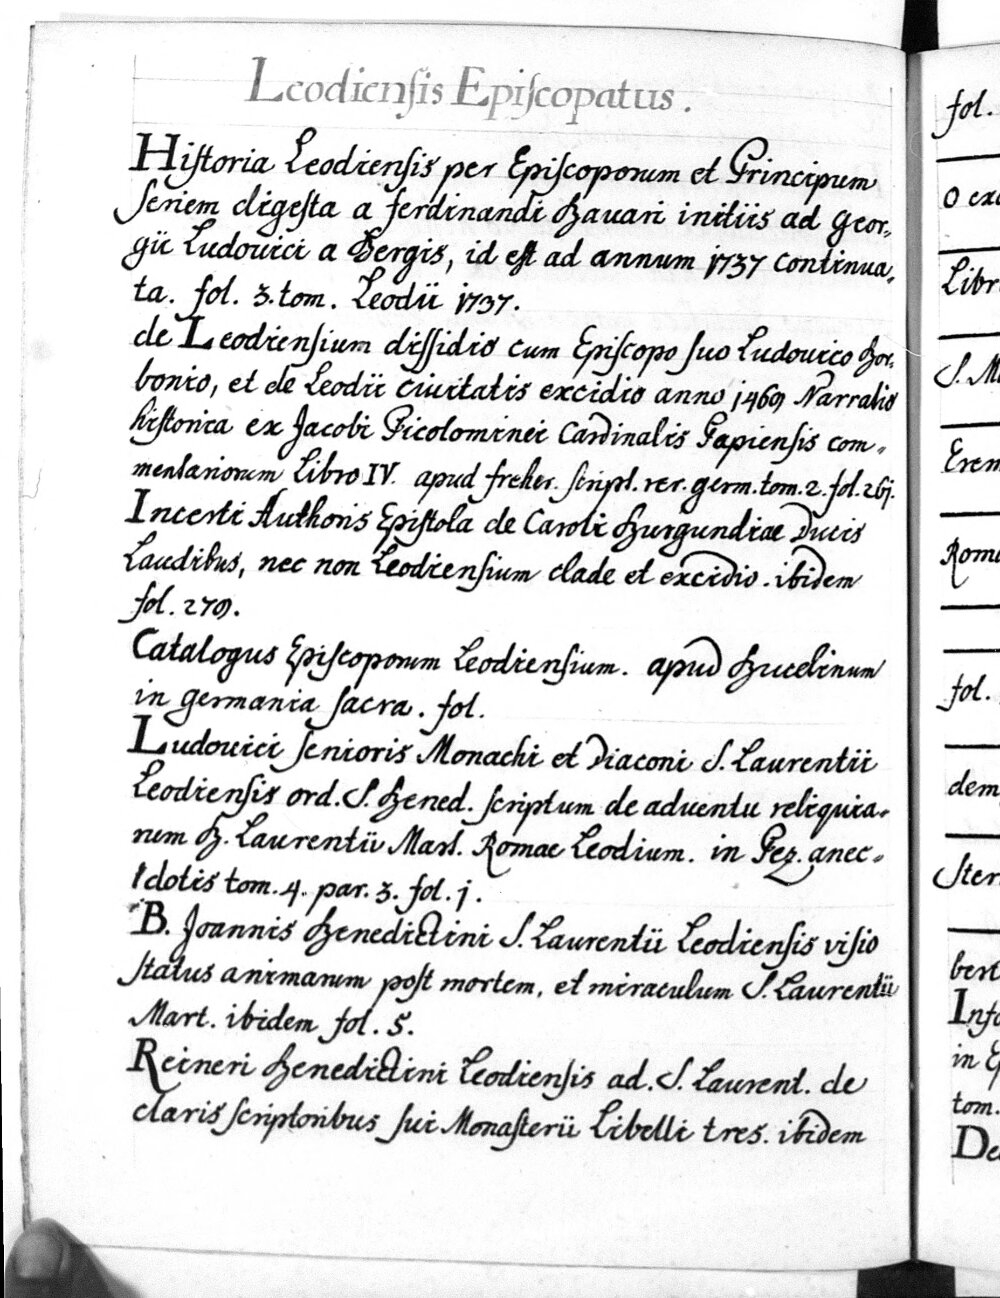 Leodiensis Episcopatus.
Historia Leodiensis per Episcoporum et Principum
seriem digesta a ferdinandi Bavari initiis ad Geor-
gii Ludovici a Bergis, id est ad annum 1737 continua-
ta. fol. 3. tom. Leodii 1737.
de Leodiensium dissidio cum Episcopo suo Ludovico Bor-
bonio, et de Leodii civitatis excidio anno 1469 Narratio
historica ex Jacobi Picolominei Cardinalis Papiensis com-
mentariorum Libro IV. apud freher. script. rer. germ. tom. 2. fol. 261.
Incerti Authoris Epistola de Caroli Burgundiae Ducis
Laudibus, nec non Leodiensium clade et excidio. ibidem
fol. 279.
Catalogus Episcoporum Leodiensium. apud Bucelinum
in germania sacra. fol.
Ludovici senioris Monachi et Diaconi S. Laurentii
Leodiensis ord. S. Bened. scriptum de adventu reliquia-
rum B. Laurentii Mart. Romae Leodium. in Pez. anec-
dotis tom. 4. par. 3. fol. 1.
B. Joannis Benedictini S. Laurentii Leodiensis visio
status animarum post mortem, et miraculum S. Laurentii
Mart. ibidem fol. 5.
Reineri Benedictini Leodiensis ad. S. Laurent. de
claris scriptoribus sui Monasterii Libelli tres. ibidem
fol.
O
Libr
S.
Erem
Roma
fol.
dem
Ster
bert
Info
in
tom.
De